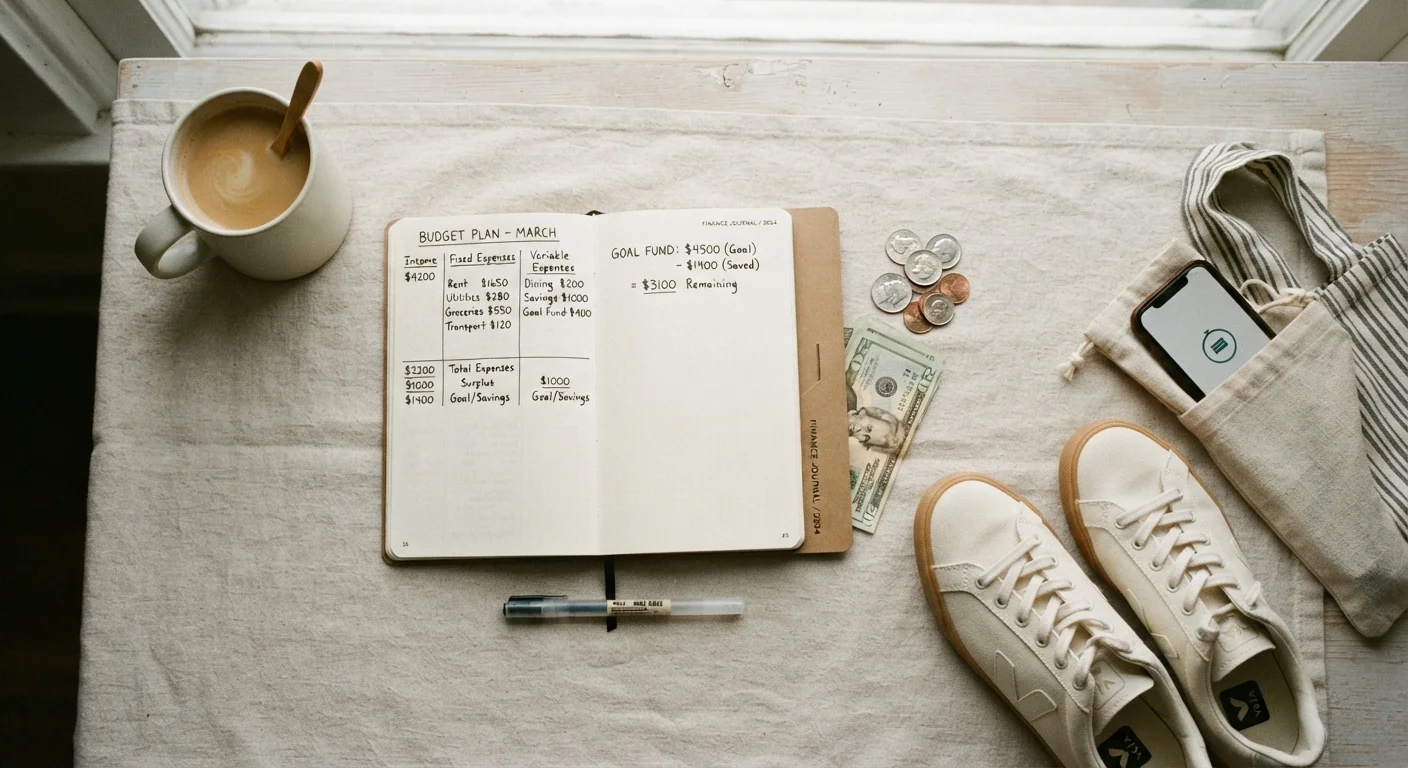 BUDGET PLAN - MARCH
Income
$4200
Fixed Expenses
Rent $1650
Utilities $280
Groceries $550
Transport $120
Variable
Expentes
Dining $200
Savings $1000
Goal Fund $400
$2300 Total Expenses
$1000 Surplut $1000
$1400 Goal/Savings Goal/Savings
16
FINANCE JOURNAL / 2024
GOAL FUND: $4500 (Goal)
- $1400 (Saved)
= $3100 Remaining
FINANCE JOURNAL / 2024
20